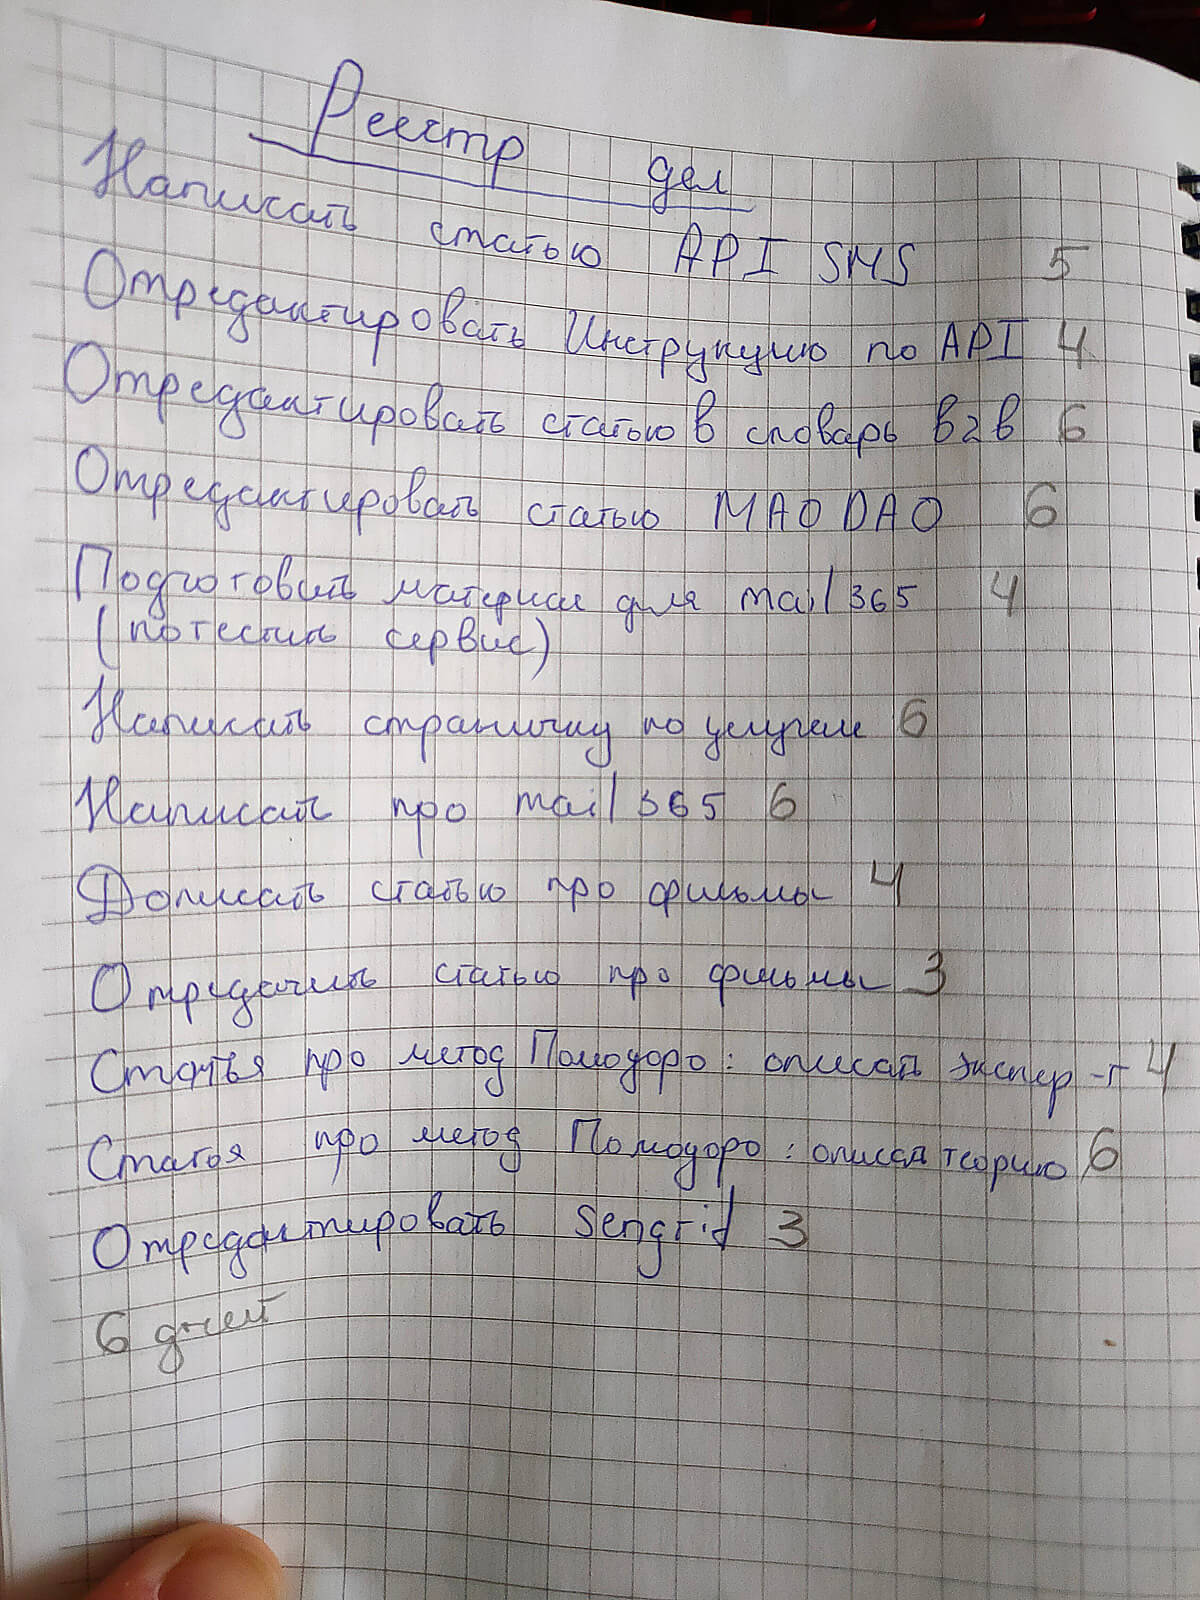 Реестр дел
Написать статью API SMS 5
Отредактировать Инструкцию по API 4
Отредактировать статью в словарь B2B 6
Отредактировать статью MAODAO 6
Подготовить материал для mail365 4
(потестить сервис)
Написать страничку по услугам 6
Написать про mail365 6
Дописать статью про фильмы 4
Отредачить статью про фильмы 3
Статья про метод Помодоро: описать экспер-т 4
Статья про метод Помодоро: описать теорию 6
Отредактировать Sengrid 3
6 дней